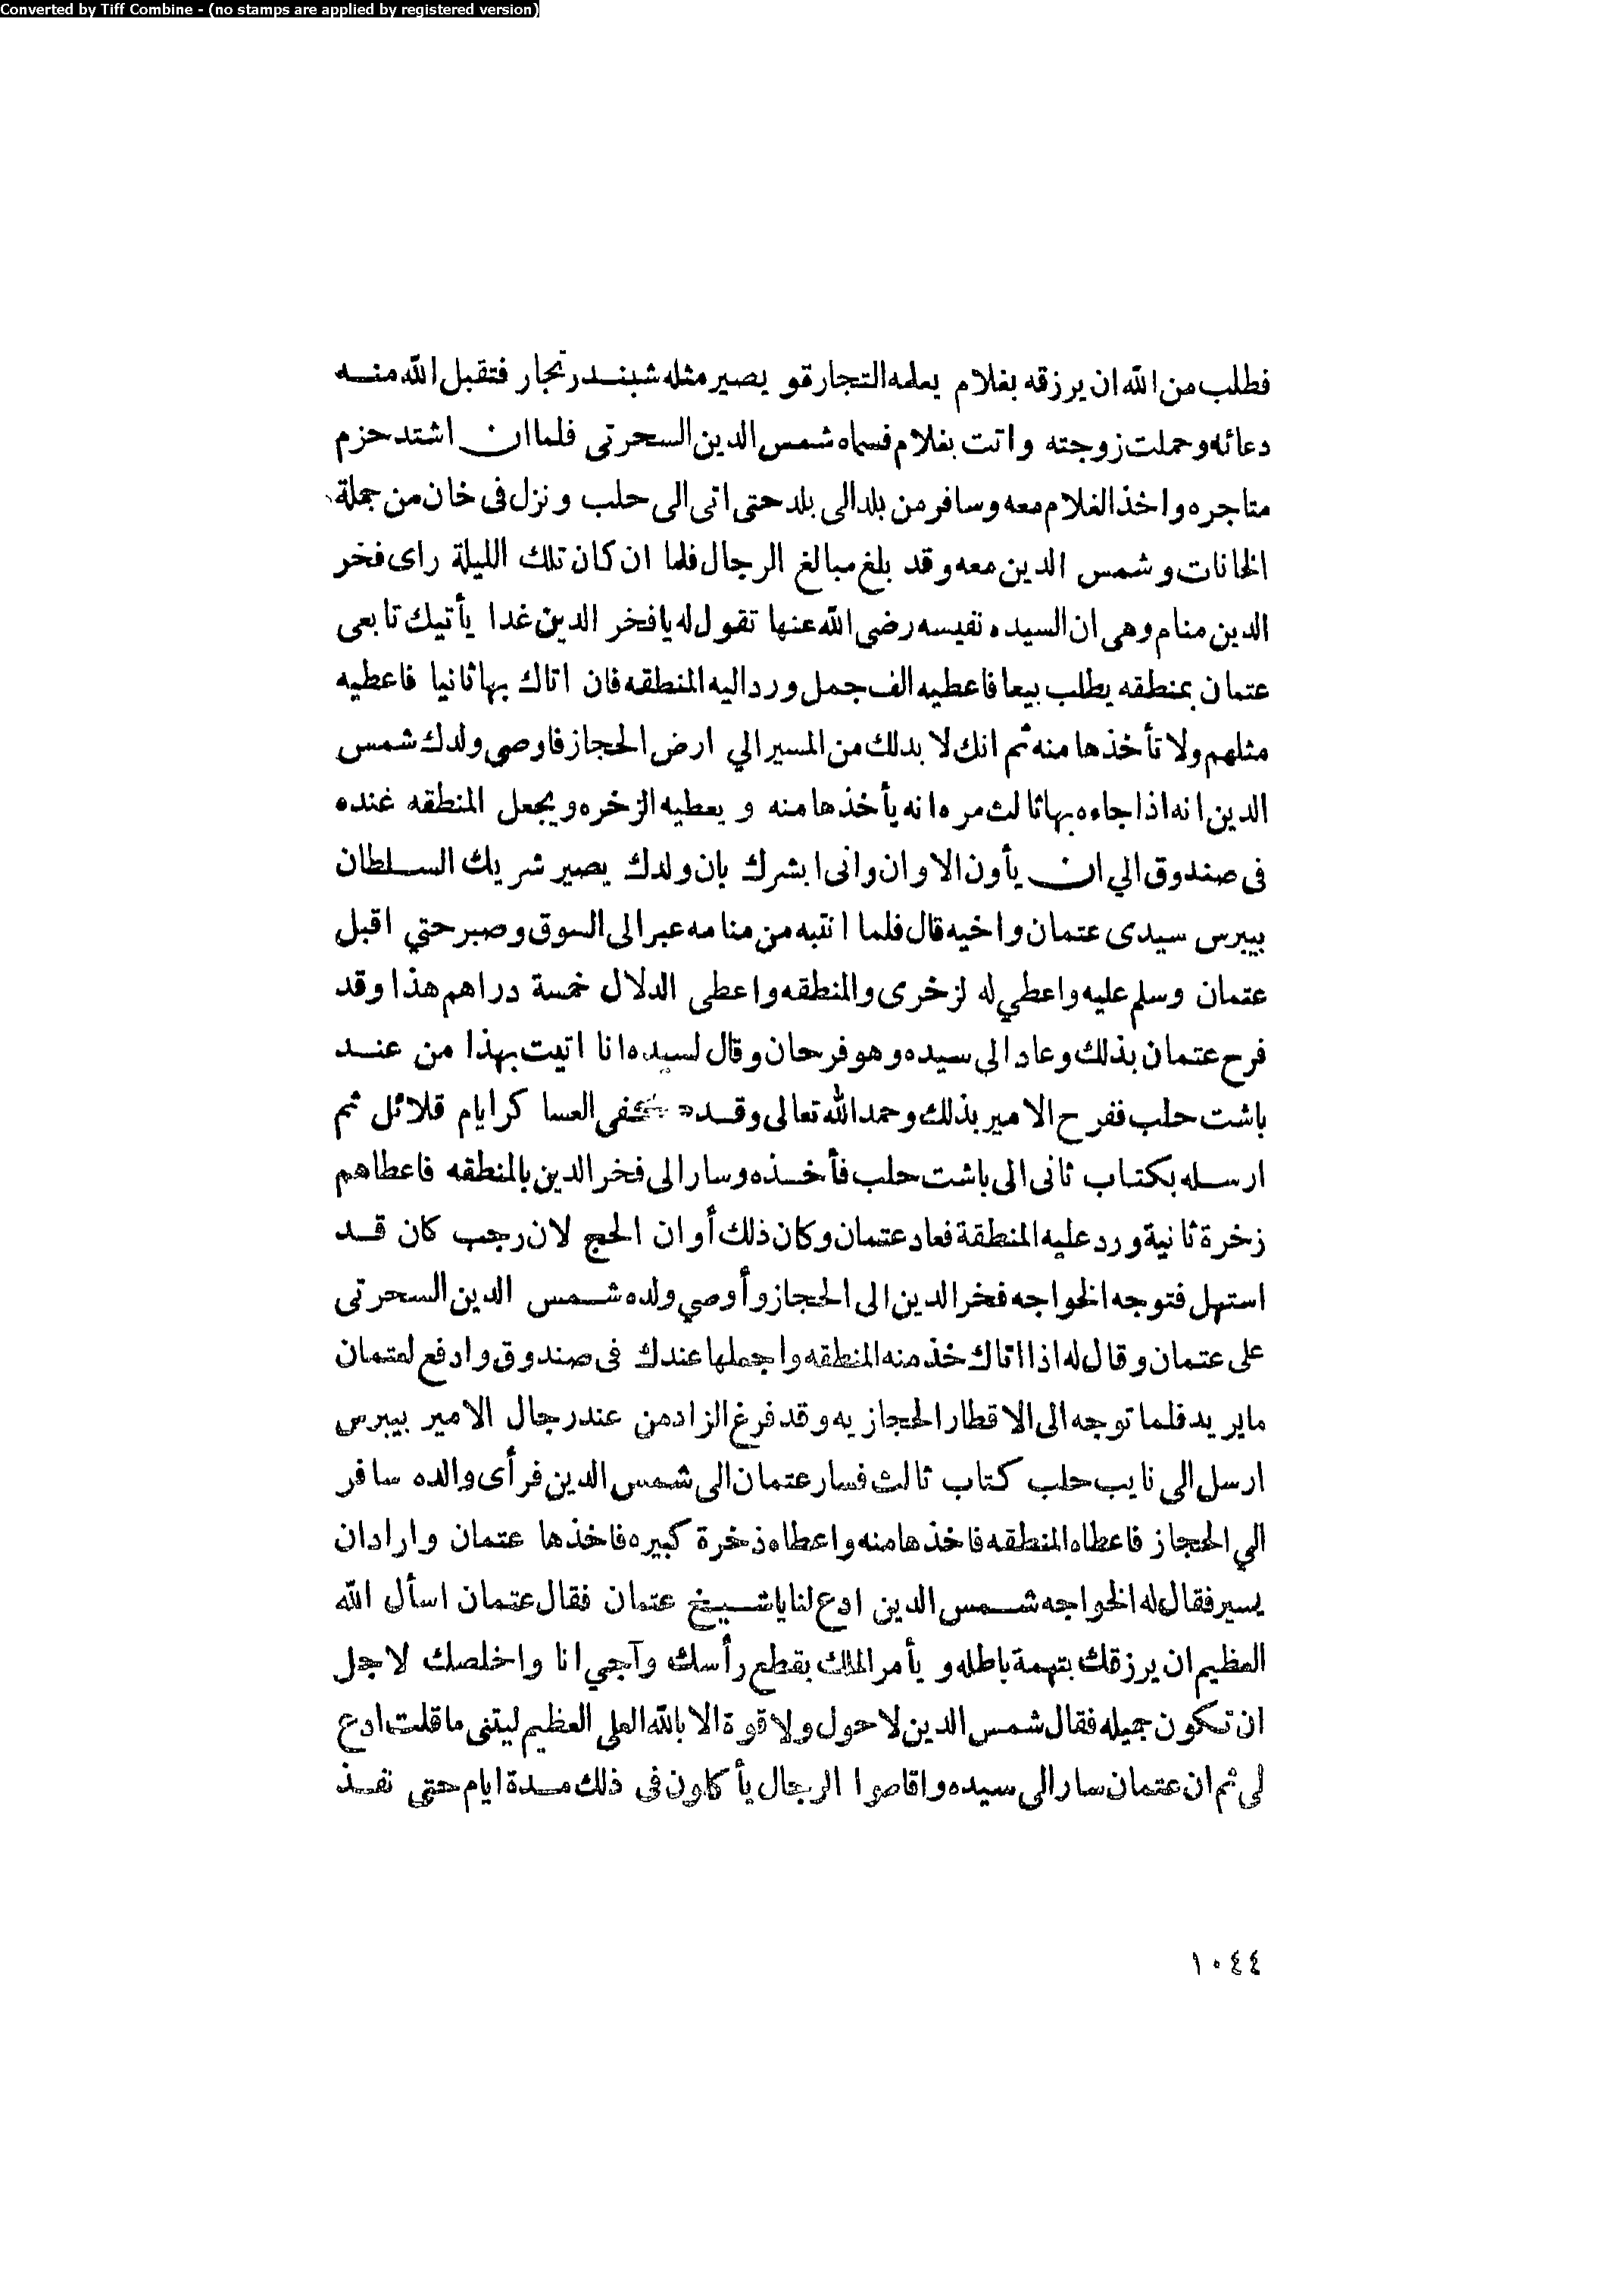 Converted by Tiff Combine - (no stamps are applied by registered version)
فطلب من الله ان يرزقه بغلام يعلمه التجارة و يصير مثله شبندر تجار فتقبل الله منه
دعائه وحملت زوجته واتت بغلام فسماه شمس الدين السحرتى فلما ان اشتد حزم
متاجره واخذ الغلام معه وسافر من بلد الى بلد حتى اتى الى حلب ونزل فى خان من جملة
الخانات وشمس الدين معه وقد بلغ مبالغ الرجال فلما ان كان تلك الليلة راى فخر
الدين منام وهى ان السيده نفيسه رضى الله عنها تقول له يا فخر الدين غدا يأتيك تابعى
عتمان بمنطقه يطلب بيعا فاعطيه الف جمل ورد اليه المنطقه فان اتاك بها ثانيا فاعطيه
مثلهم ولا تأخذها منه ثم انك لا بدلك من المسير الي ارض الحجاز فاوصى ولدك شمس
الدين انه اذا جاءه بها ثالث مره انه يأخذها منه و يعطيه الزخره ويجعل المنطقه عنده
فى صندوق الي ان يأون الاوان وانى ابشرك بان ولدك يصير شريك السلطان
بيبرس سيدى عتمان واخيه قال فلما انتبه من منامه عبر الى السوق وصبر حتي اقبل
عتمان وسلم عليه واعطي له لزخرى والمنطقه واعطى الدلال خمسة دراهم هذا وقد
فرح عتمان بذلك وعاد الى سيده وهو فرحان وقال لسيده انا اتيت بهذا من عند
باشت حلب ففرح الامير بذلك وحمد الله تعالى وقد العساكر ايام قلائل ثم
ارسله بكتاب ثانى الى باشت حلب فأخذه وسار الى فخر الدين بالمنطقه فاعطاهم
زخرة ثانية ورد عليه المنطقة فعاد عتمان وكان ذلك أوان الحج لان رجب كان قد
استهل فتوجه الخواجه فخر الدين الى الحجاز وأوصي ولده شمس الدين السحرتى
على عتمان وقال له اذا اتاك خذ منه المنطقه واجعلها عندك فى صندوق وادفع لعتمان
ما يريد فلما توجه الى الاقطار الحجازيه وقد فرغ الزاد من عند رجال الامير بيبرس
ارسل الى نايب حلب كتاب ثالث فسار عتمان الى شمس الدين فرأى والده سافر
الي الحجاز فاعطاه المنطقه فاخذها منه واعطاه ذخرة كبيره فاخذها عتمان واراد ان
يسير فقال له الخواجه شمس الدين ادع لنا يا شيخ عتمان فقال عتمان اسأل الله
العظيم ان يرزقك بتهمة باطله و يأمر الملك بقطع رأسك وآجي انا واخلصك لاجل
ان تكون جميله فقال شمس الدين لا حول ولا قوة الا بالله العلى العظيم ليتنى ما قلت ادع
لى ثم ان عتمان سار الى سيده واقاموا الرجال يأكلون فى ذلك مدة ايام حتى نفذ
١٠٤٤